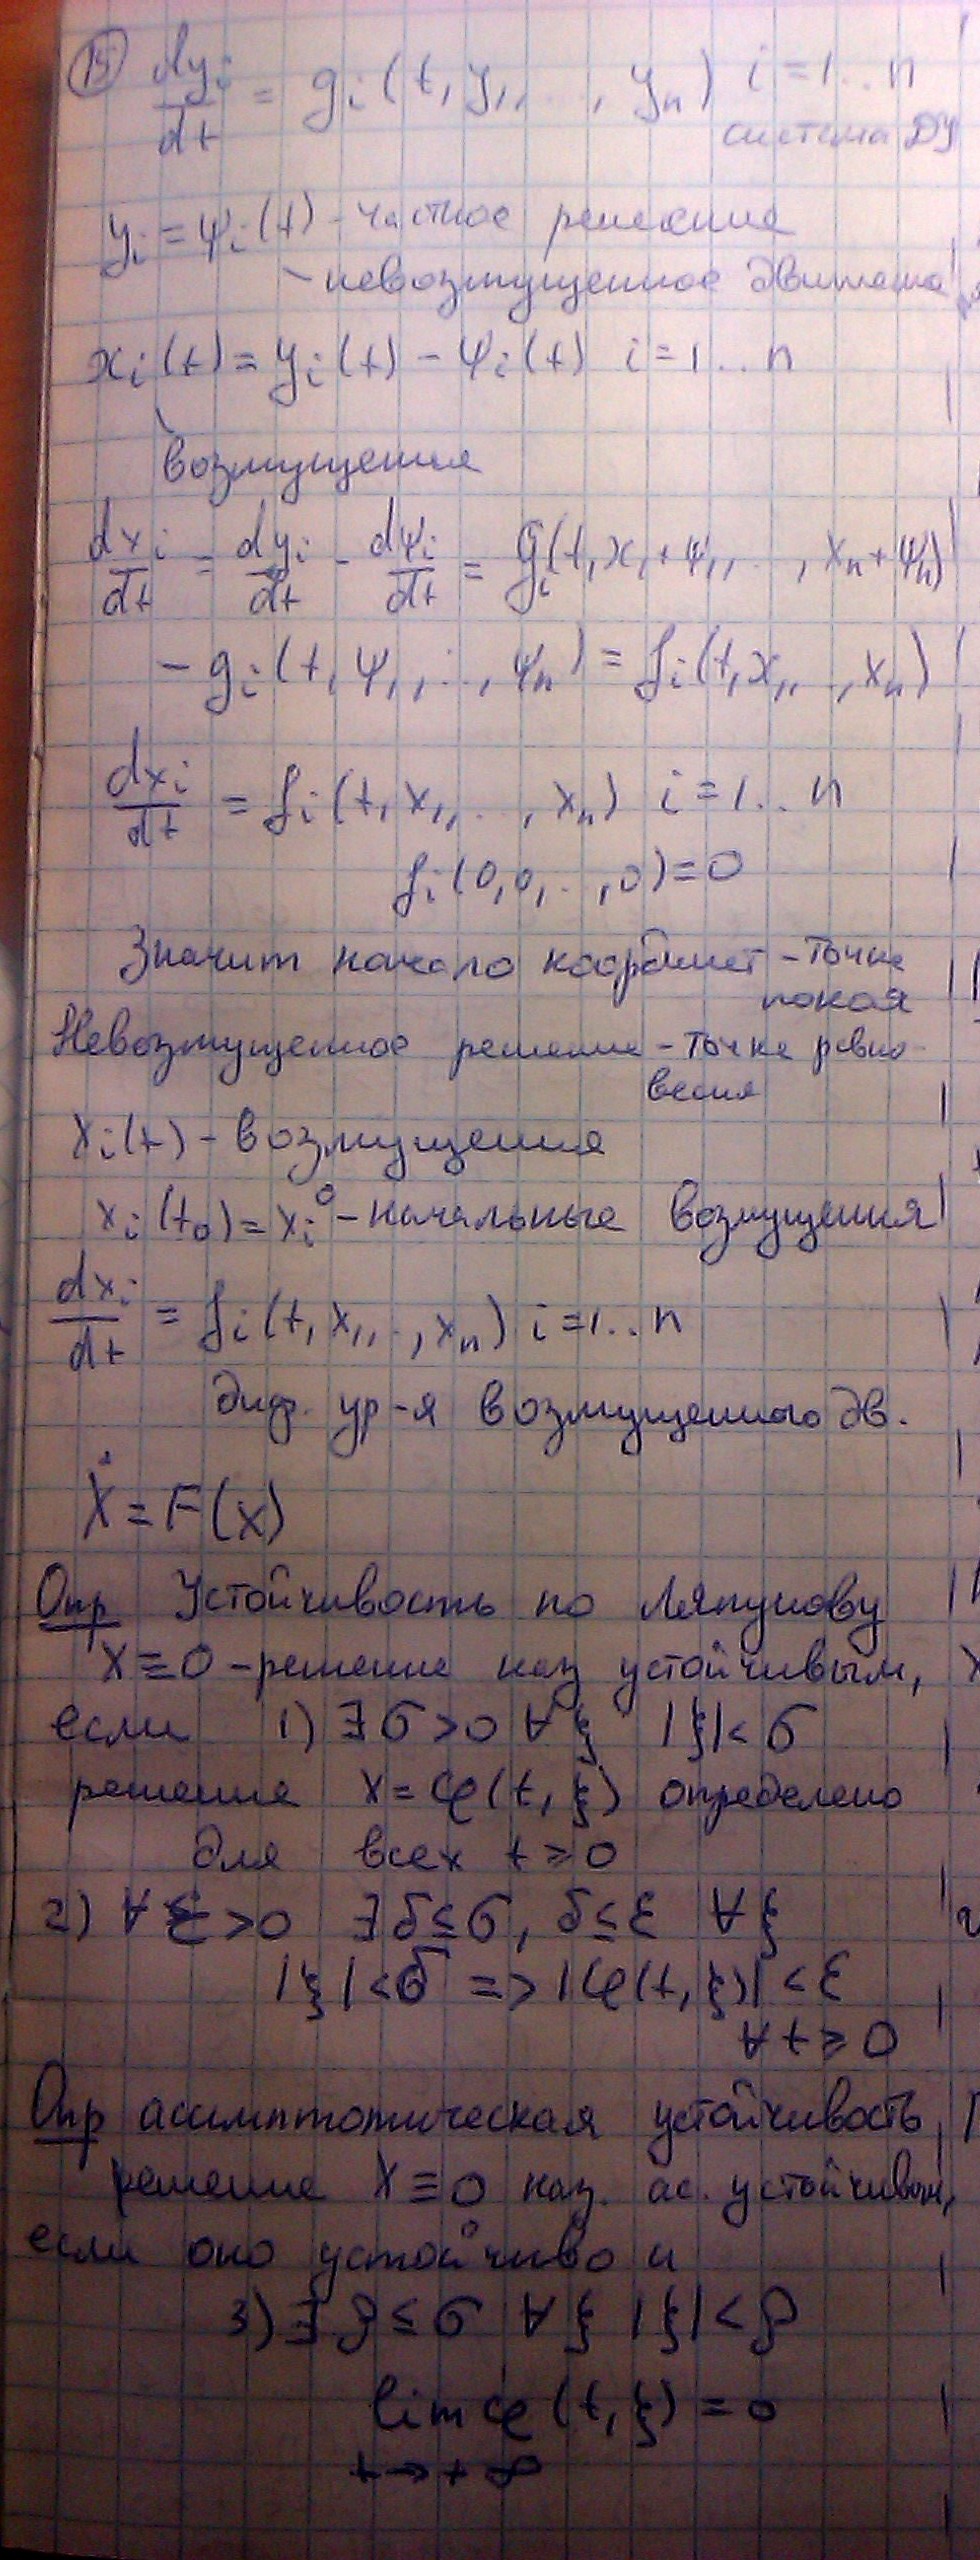 15 dyᵢ/dt = gᵢ(t, y₁, ..., yₙ) i = 1..n
система ДУ
yᵢ = ψᵢ(t) - частное решение
- невозмущенное движение
xᵢ(t) = yᵢ(t) - ψᵢ(t) i = 1..n
возмущения
dxᵢ/dt = dyᵢ/dt - dψᵢ/dt = gᵢ(t, x₁+ψ₁, ..., xₙ+ψₙ)
- gᵢ(t, ψ₁, ..., ψₙ) = fᵢ(t, x₁, .., xₙ)
dxᵢ/dt = fᵢ(t, x₁, ..., xₙ) i = 1..n
fᵢ(0, 0, .., 0) = 0
Значит начало координат - точка
покоя
Невозмущенное решение - точка равно-
весия
xᵢ(t) - возмущения
xᵢ(t₀) = xᵢ⁰ - начальные возмущения
dxᵢ/dt = fᵢ(t, x₁, .., xₙ) i = 1..n
диф. ур-я возмущенного дв.
Ẋ = F(x)
Опр Устойчивость по Ляпунову
X ≡ 0 - решение наз устойчивым,
если 1) ∃ σ > 0 ∀ ξ |ξ| < σ
решение x = φ(t, ξ) определено
для всех t ≥ 0
2) ∀ ε > 0 ∃ δ ≤ σ, δ ≤ ε ∀ ξ
|ξ| < δ => |φ(t, ξ)| < ε
∀ t ≥ 0
Опр асимптотическая устойчивость
решение X ≡ 0 наз. ас. устойчивым,
если оно устойчиво и
3) ∃ ρ ≤ σ ∀ ξ |ξ| < ρ
lim φ(t, ξ) = 0
t → + ∞